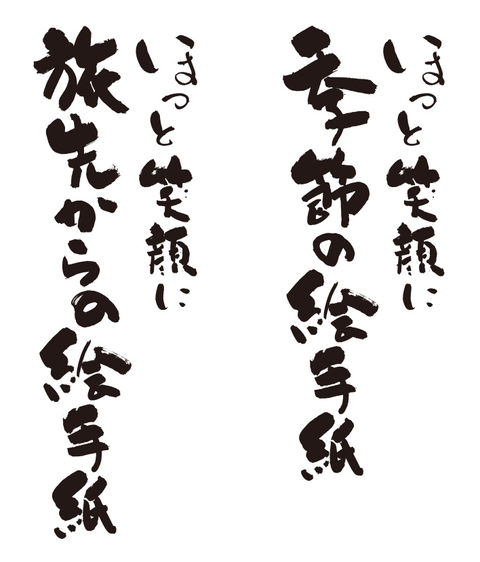 ほっと笑顔に
季節の絵手紙
ほっと笑顔に
旅先からの絵手紙